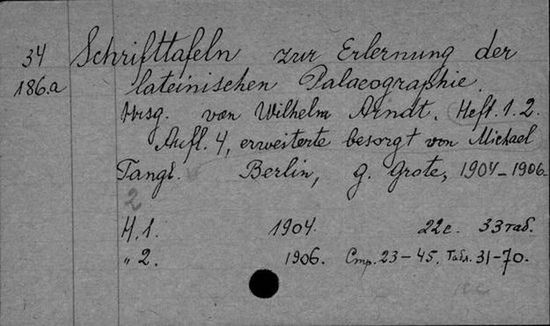 34 Schrifttafeln zur Erlernung der
186.a lateinischen Palaeographie.
Hrsg. von Wilhelm Arndt. Heft. 1. 2.
Aufl. 4, erweiterte besorgt von Michael
Tangl. Berlin, G. Grote, 1904–1906.
2
H. 1. 1904. 22 с. 33 таб.
„ 2. 1906. Стр. 23–45, Табл. 31–70.